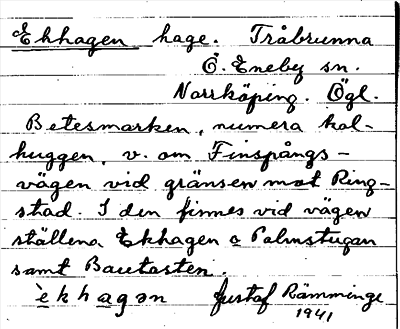 Ekhagen hage. Tråbrunna
Ö. Eneby sn.
Norrköping. Ögl.
Betesmarken, numera kal-
huggen, v. om Finspångs-
vägen vid gränsen mot Ring-
stad. I den finnes vid vägen
ställena Ekhagen o Palmstugan
samt Bautasten.
èkhagən Gustaf Rämminge
1941